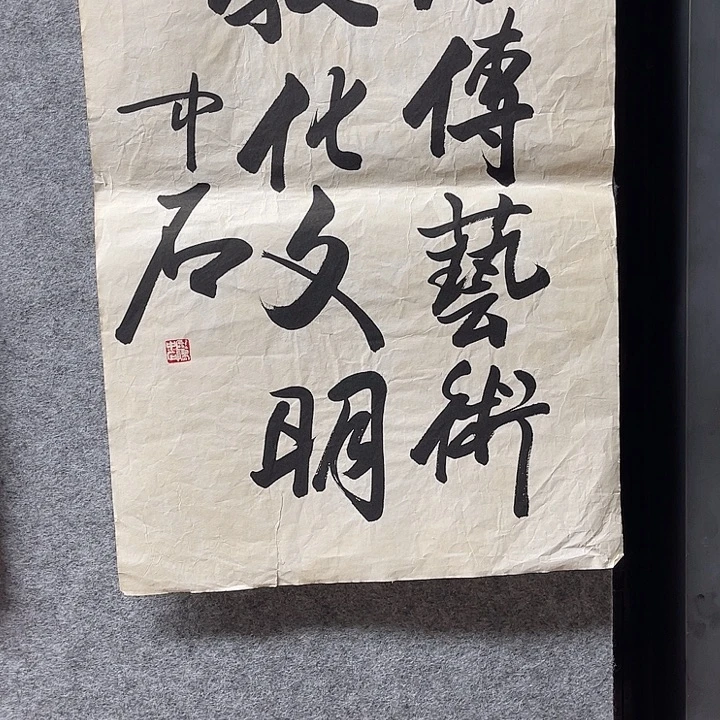 傳藝術
化文明
中石